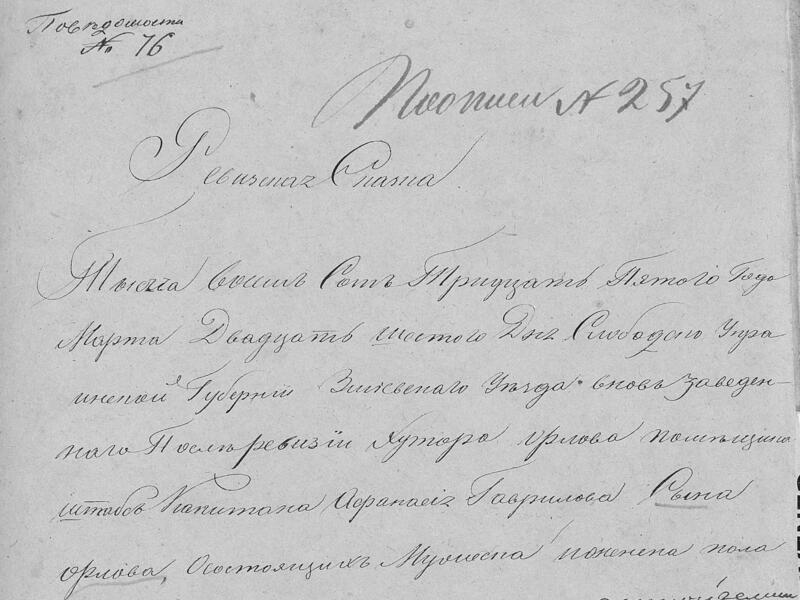 Поведомости
№ 76
По описи № 257
Ревизская Сказка
Тысяча восимь Сотъ Тридцать Пятого Года
Марта Двадцать шестого Дня Слободско Укра
инской Губернiи Змiевского Уѣзда вновь заведен-
наго Послѣ ревизiи Хутора Орлова помѣщика
штабсъ Капитана Афанасiя Гаврилова Сына
Орлова, Осостоящихъ Мужеска иженска пола